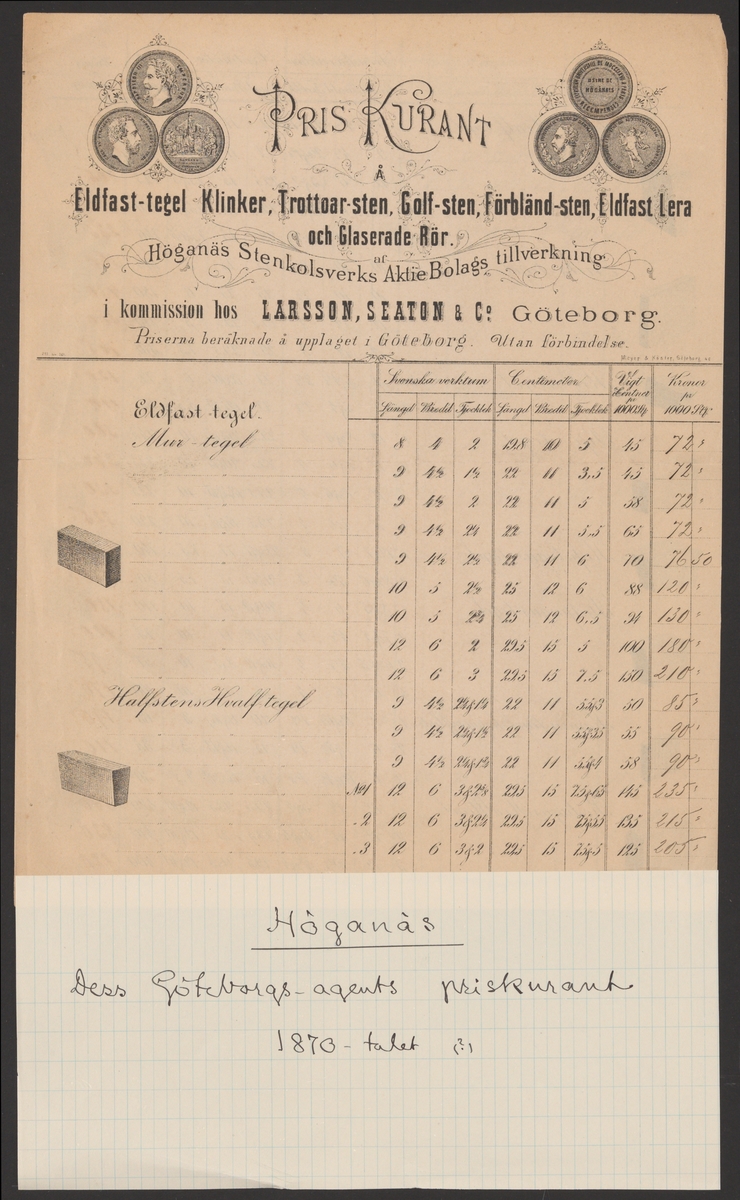 USINE DE
HÖGANÄS
PRIS KURANT
Å
Eldfast-tegel Klinker, Trottoar-sten, Golf-sten, Förbländ-sten, Eldfast Lera
och Glaserade Rör.
af
Höganäs Stenkolsverks Aktie Bolags tillverkning
i kommission hos LARSSON, SEATON & Co Göteborg.
Priserna beräknade å upplaget i Göteborg. Utan förbindelse.
Svenska verktum Centimeter Vigt Centner pr 1000 St Kronor pr 1000 St
Längd Bredd Tjocklek Längd Bredd Tjocklek
Eldfast-tegel.
Mur-tegel 8 4 2 19.8 10 5 45 72 "
9 4½ 1½ 22 11 3,5 45 72 "
9 4½ 2 22 11 5 58 72 "
9 4½ 2¼ 22 11 5,5 65 72 "
9 4½ 2½ 22 11 6 70 76 50
10 5 2½ 25 12 6 88 120 "
10 5 2¾ 25 12 6,5 94 130 "
12 6 2 29.5 15 5 100 180 "
12 6 3 29.5 15 7.5 150 210 "
Halfstens Hvalf tegel 9 4½ 2¼&1¼ 22 11 5.5&3 50 85 "
9 4½ 2¼&1½ 22 11 5.5&3.5 55 90 "
9 4½ 22 11 5.5&4 58 90 "
No 1 12 6 29.5 15 7.5&6.5 145 235 "
" 2 12 6 3&2¼ 29.5 15 7.5&5.5 135 215 "
" 3 12 6 3&2 29.5 15 7.5&5 125 205 "
Höganäs
Dess Göteborgs-agents priskurant
1870-talet (?)